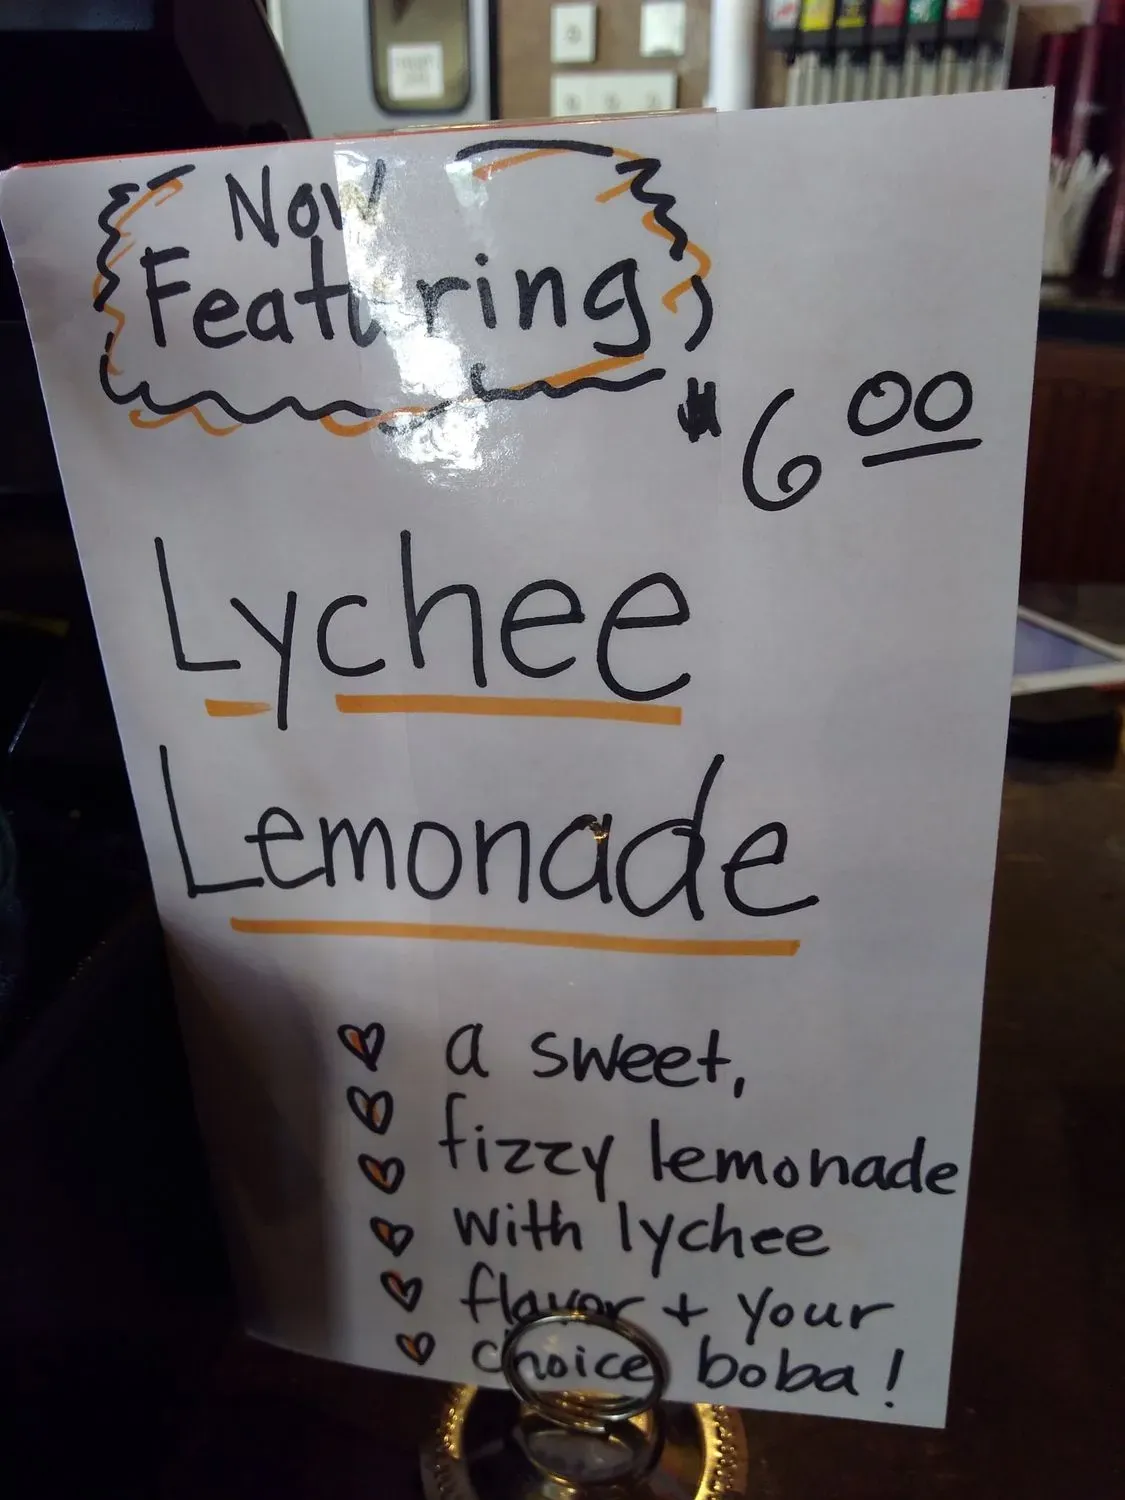 Now
Featuring
$6.00
Lychee
Lemonade
a sweet,
fizzy lemonade
with lychee
flavor + your
choice boba!